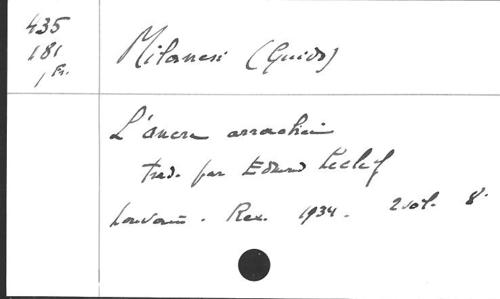 435
181
1 Fr.
Milanesi (Guido)
L'ancre arrachée
trad. par Edmond Leclef
Louvain. Rex. 1934. 2 vol. 8°